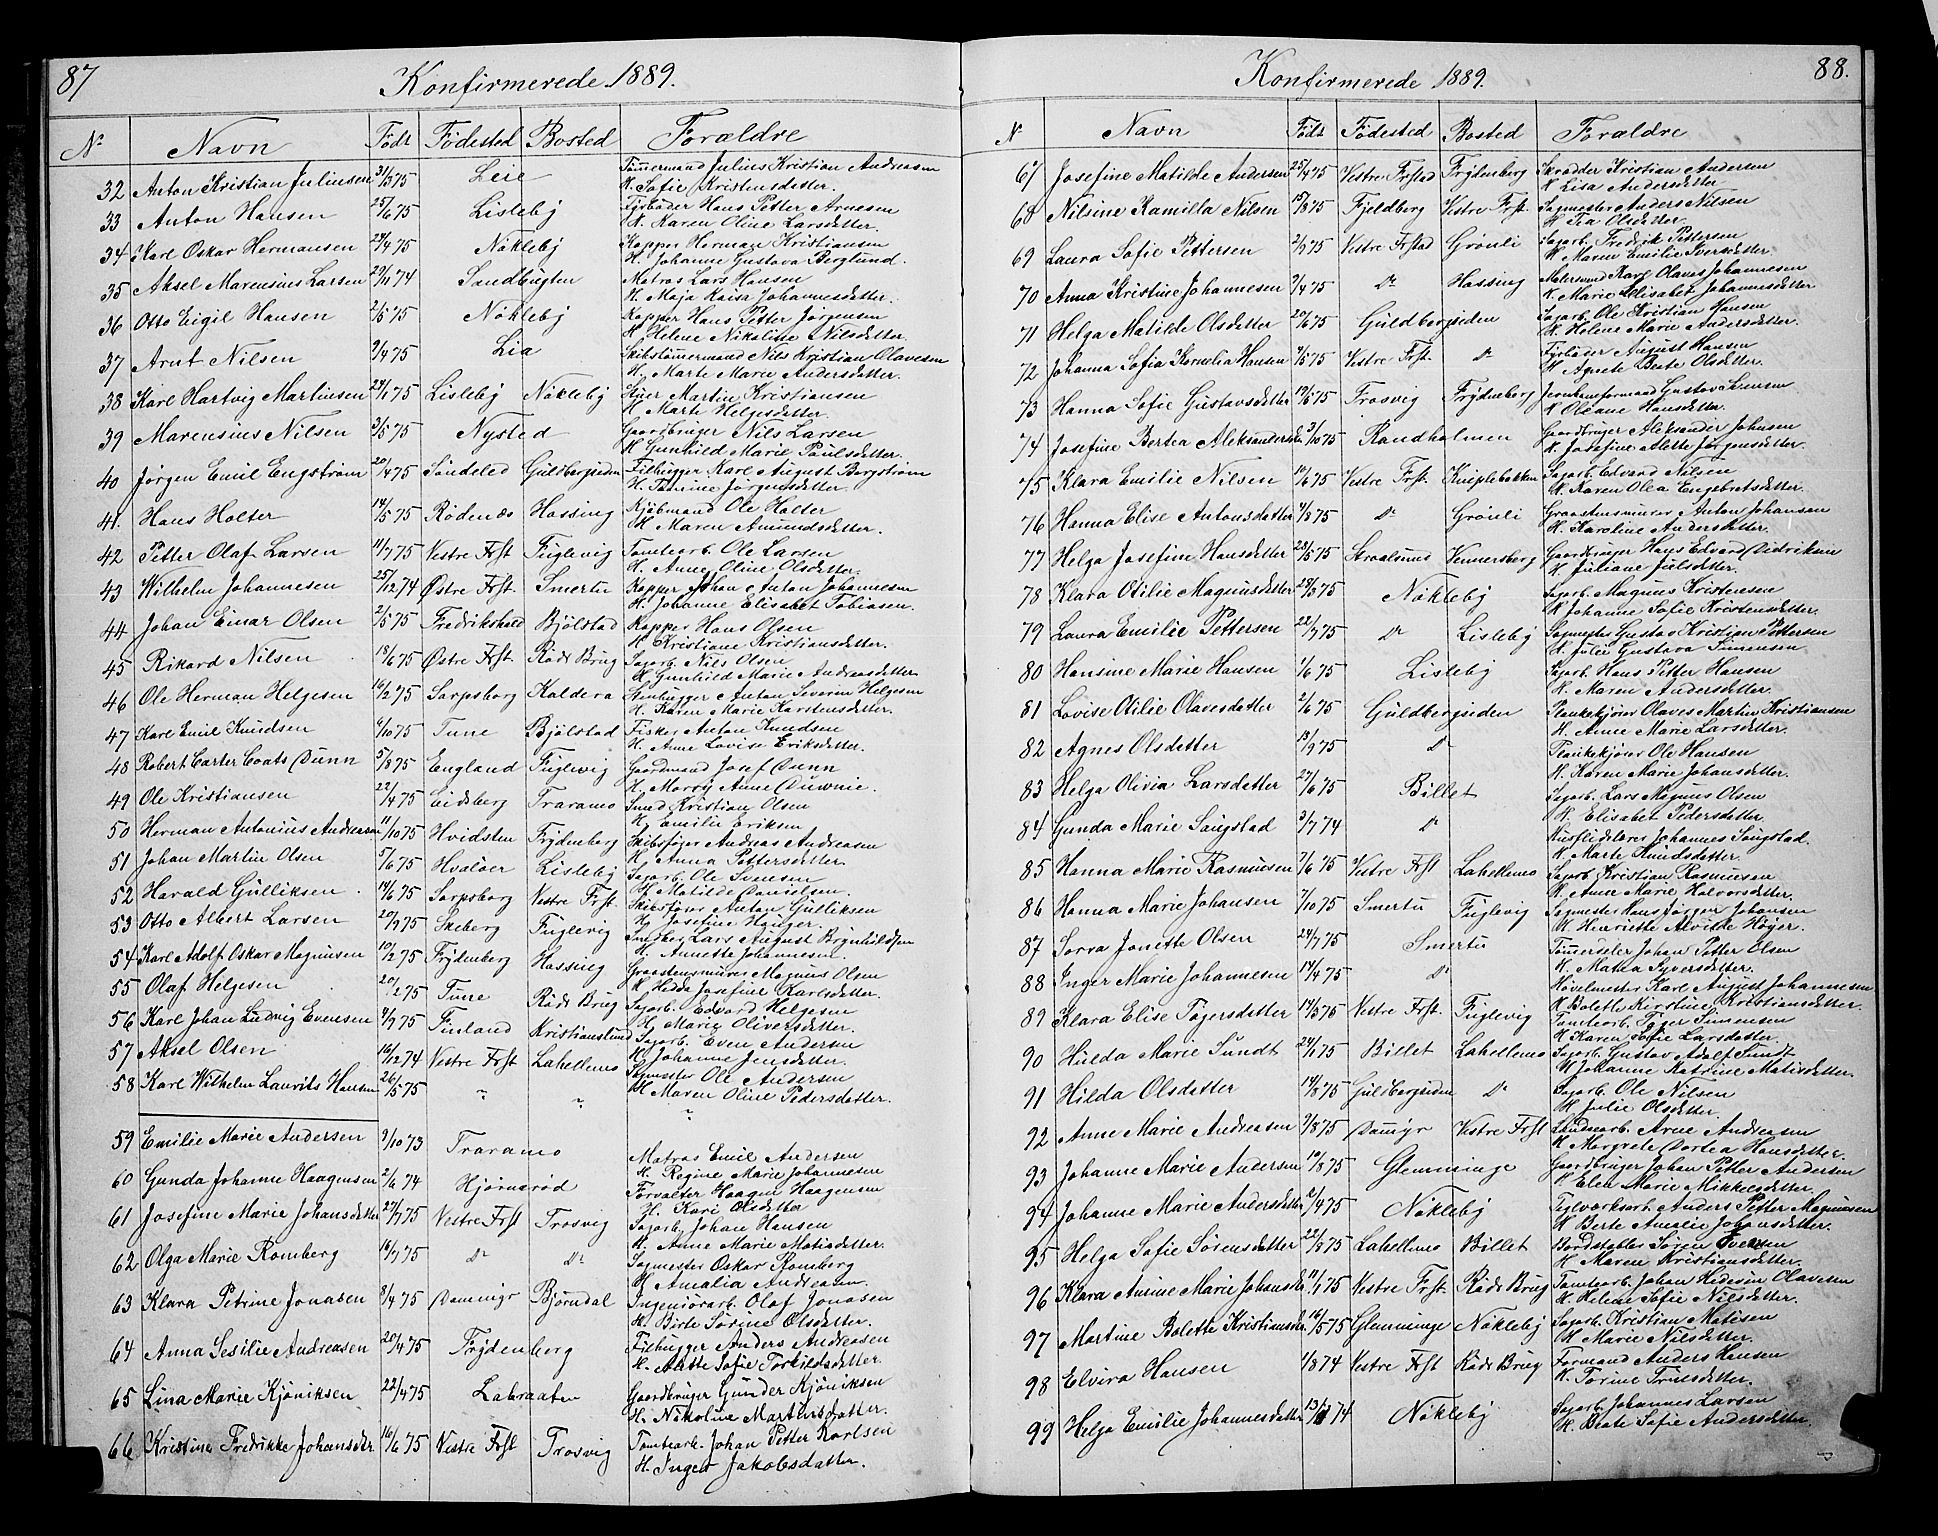 87
Konfirmerede 1889.
Nr Navn Født Fødested Bosted Forældre
32 Anton Kristian Juliussen 31/3 75 Leie Tømmermand Julius Kristian Andreasen
H. Sofie Kristensdatter.
33 Anton Hansen 25/6 75 Lisleby Fyrbøder Hans Petter Arnesen
H. Karen Oline Larsdatter.
34 Karl Oskar Hermansen 28/4 75 Nøkleby Kapper Herman Kristiansen
H. Johanne Gustava Berglund.
35 Aksel Marensius Larsen 29/11 74 Sandbugten Matros Lars Hansen
H. Maja Kaisa Johannesdatter.
36 Otto Eigil Hansen 2/5 75 Nøkleby Kapper Hans Petter Jørgensen
H. Helene Nikoline Nilsdatter.
37 Arnt Nilsen 9/4 75 Lia Skibstømmermand Nils Kristian Olavesen
H. Marte Marie Andersdatter.
38 Karl Hartvig Martinsen 24/1 75 Lisleby Nøkleby Stuer Martin Kristiansen
H. Marte Helgesdatter.
39 Marensius Nilsen 3/5 75 Nysted Gaardbruger Nils Larsen
H. Gunhild Marie Paulsdatter.
40 Jørgen Emil Engstrøm 20/4 75 Søndeled Guldbergsiden Filhugger Karl August Borgstrøm
H. Tomine Jørgensdatter.
41. Hans Holter 14/5 75 Rødenæs Hassing Kjøbmand Ole Holter
H. Maren Amundsdatter.
42 Petter Olaf Larsen 11/7 75 Vestre Frst Fuglevig Tomtearb. Ole Larsen
H. Anne Oline Olsdatter.
43 Wilhelm Johannesen 25/12 74 Østre Frst. Smertu Kapper Johan Anton Johannesen
H. Johanne Elisabet Tobiasen.
44 Johan Einar Olsen 2/5 75 Fredrikshald Bjølstad Kapper Hans Olsen
H. Kristiane Kristiansdatter.
45 Rikard Nilsen 18/6 75 Østre Frst. Røds Brug Sagarb. Nils Olsen
H. Gunhild Marie Andreasdatter
46 Ole Herman Helgesen 16/2 75 Sarpsborg Kaldera Stenhugger Anton Severin Helgesen
H. Karen Marie Karstensdatter.
47 Karl Emil Knudsen 6/10 75 Tune Bjølstad Fisker Anton Knudsen
H. Anne Lovise Eriksdatter.
48 Robert Carter Coats Dunn 5/8 75 England Fuglevig Gaardmand Josef Dunn
H. Morry Anne Duwnie.
49 Ole Kristiansen 22/4 75 Eidsberg Traramo Smed Kristian Olsen
H. Emilie Eriksen
50 Herman Antonius Andreasen 11/10 75 Hvidsten Frydenberg Skibsfører Andreas Andreasen
H. Anna Pettersdatter.
51 Johan Martin Olsen 5/6 75 Hvaløer Lisleby Sagarb. Ole Svensen
H. Matilde Danielsen.
52 Harald Gulliksen 14/6 75 Sarpsborg Vestre Frst. Skibsfører Anton Gulliksen
H. Josefine Hauger.
53 Otto Albert Larsen 20/9 75 Skeberg Fuglevig Lars August Brynhildsen
H. Annette Johannesen.
54 Karl Adolf Oskar Magnusen 10/2 75 Frydenberg Hassing Graastensmurer Magnus Olsen
H. Hedda Josefine Karlsdatter.
55 Olaf Helgesen 20/2 75 Tune Røds Brug Sagarb. Edvard Helgesen
H. Marie Oliversdatter.
56 Karl Johan Ludvig Evensen 4/9 75 Finland Kristianslund Sagarb. Even Andersen
H. Johanne Jensdatter.
57 Aksel Olsen 16/12 74 Vestre Frst Lahellemo Sagmester Ole Andersen
H. Maren Oline Pedersdatter.
58 Karl Wilhelm Laurits Hansen 26/5 75 " " "
59 Emilie Marie Andersen 9/10 73 Traramo Matros Emil Andersen
H. Regine Marie Johannesen
60 Gunda Johanne Haagensen 2/6 74 Hjørnerød Forvalter Haagen Haagensen
H. Kari Olsdatter
61 Josefine Marie Johansdatter 27/7 75 Vestre Frst Trosvig Sagarb. Johan Hansen
H. Anne Marie Matisdatter.
62 Olga Marie Romberg 16/7 75 Do Do Sagmester Oskar Romberg
H. Amalia Andreasen.
63 Klara Petrine Jonasen 8/4 75 Damingr Bjørndal Ingeniørarb. Olaf Jonasen
H. Birte Sørine Olsdatter.
64 Anna Sesilie Andreasen 20/4 75 Frydenberg Filhugger Anders Andreasen
H. Alette Sofie Torkildsdatter.
65 Lina Marie Kjøniksen 22/4 75 Labraaten Gaardbruger Gunder Kjøniksen
H. Nikoline Martinsdatter.
66 Kristine Fredrikke Johansdtr. 16/6 75 Vestre Frst Trosvig Tomtearb. Johan Petter Karlsen
H. Inger Jakobsdatter.
88.
Konfirmerede 1889.
N Navn Født Fødested Bosted Forældre
67 Josefine Matilde Andersen 25/4 75 Vestre Frstad Frydenberg Skrædder Kristian Andersen
H Lisa Andersdatter
68 Nilsine Kamilla Nilsen 15/8 75 Fjeldberg Vestre Frst. Sagmester Anders Nilsen
H Tea Olsdatter.
69 Laura Sofie Pettersen 2/7 75 Vestre Frstad Grønli Sagarb. Fredrik Pettersen
H Maren Emilie Iversdatter.
70 Anna Kristine Johannesen 7/4 75 Do Hassing Matersmd Karl Olaves Johannesen
H. Marie Elisabet Johannesdatter
71 Helga Matilde Olsdatter 20/6 75 Guldbergsiden Sagarb. Ole Kristian Hansen
H. Helene Marie Andersdatter.
72 Johanna Sofia Kornelia Hansen 9/5 75 Vestre Frst. Do Fyrbøder August Hansen
H Agnete Beate Olsdatter.
73 Hanna Sofie Gustavsdatter 19/6 75 Trosvig Frydenberg Jernbaneformand Gustav Larsen
H Oleane Hansdatter.
74 Josefine Bertea Aleksandersdtr 3/10 75 Randholmen Gaardbruger Aleksander Johnsen
H. Josefine Alette Jørgensdatter.
75 Klara Emilie Nilsen 19/6 75 Vestre Frst. Kniplebakken Sagarb. Edvard Nilsen
H. Karen Olea Engebretsdatter.
76 Hanna Elise Antonsdatter 21/3 75 Do Grønli Graastensmurer Anton Johansen
H. Karoline Andersdatter.
77 Helga Josefine Hansdatter 28/5 75 Straalsund Vennersberg Gaardbruger Hans Edvard Didriksen
H Juliane Julsdatter.
78 Klara Otilie Magnusdatter 28/3 75 Nøkleby Sagarb. Magnus Kristensen
H Johanne Sofie Kristensdatter.
79 Laura Emilie Pettersen 22/7 75 Do Lisleby Sagmester Gustav Kristian Pettersen
H. Julie Gustava Simensen
80 Hansine Marie Hansen 1/6 75 Lisleby Sagarb. Hans Petter Hansen
H. Maren Andersdatter.
81 Lovise Otilie Olavesdatter 2/6 75 Guldbergsiden Plankekjører Olaves Martin Kristiansen
H. Anne Marie Larsdatter.
82 Agnes Olsdatter 13/9 75 Do Plankekjører Ole Hansen
H. Karen Marie Johansdatter.
83 Helga Olivia Larsdatter 27/6 75 Billet Sagarb. Lars Magnus Olsen
H. Elisabet Pedersdatter.
84 Gunda Marie Saugstad 3/7 74 Do Husflidslærer Johannes Saugstad.
H. Marte Knudsdatter.
85 Hanna Marie Rasmusen 7/6 75 Vestre Frst Lahellemo Sagarb. Kristian Rasmusen
H. Anne Marie Halvorsdatter.
86 Hanna Marie Johansen 7/10 75 Smertu Fuglevig Sagmester Hans Jørgen Johansen
H. Henriette Alvilde Høyer.
87 Sorra Jonette Olsen 24/7 75 Smertu Tømmerseler Johan Petter Olsen
H. Matea Syversdatter.
88 Inger Marie Johannesen 14/4 75 Do Høvelmester Karl August Johannesen
H Bolette Kirstine Kristiansdatter.
89 Klara Elise Tøgersdatter 14/5 75 Vestre Frst. Fuglevig Tomtearb. Tøger Simensen
H Karen Sofie Larsdatter.
90 Hulda Marie Sundt 24/1 75 Billet Lahellemo Sagarb. Gustav Adolf Sundt
H Johanne Katrine Matisdatter.
91 Hilda Olsdatter 14/2 75 Guldbergsiden Do Sagarb. Ole Nilsen
H. Julie Olsdatter.
92 Anne Marie Andreasen 9/8 75 Damyr Vestre Frst Landsarb. Arne Andreasen
H Margrete Dortea Hansdatter.
93 Johanne Marie Andersen 19/8 75 Glemminge Gaardbruger Johan Petter Andersen
H Elen Marie Mikkelsdatter.
94 Johanne Marie Andersdatter 2/4 75 Nøkleby Teglværksarb. Anders Petter Magnusen
H Berte Amalie Johansdatter.
95 Helga Sofie Sørensdatter 22/3 75 Lahellemo Billet Bordstabler Søren Evensen
H Maren Kristiansdatter.
96 Klara Amine Marie Johansdtr 11/1 75 Vestre Frst. Røds Brug Tomtearb. Johan Hedevin Olavesen
H. Helene Sofie Nilsdatter.
97 Martine Bolette Kristiansdtr. 16/5 75 Glemminge Nøkleby Sagarb. Kristian Matisen
H Marie Nilsdatter.
98 Elvira Hansen 1/8 74 Vestre Frst Røds Brug Formand Anders Hansen
H. Torine Truelsdatter.
99 Helga Emilie Johannesdatter 13/ 74 Nøkleby Sagarb. Johannes Larsen
H. Beate Sofie Andersdatter.